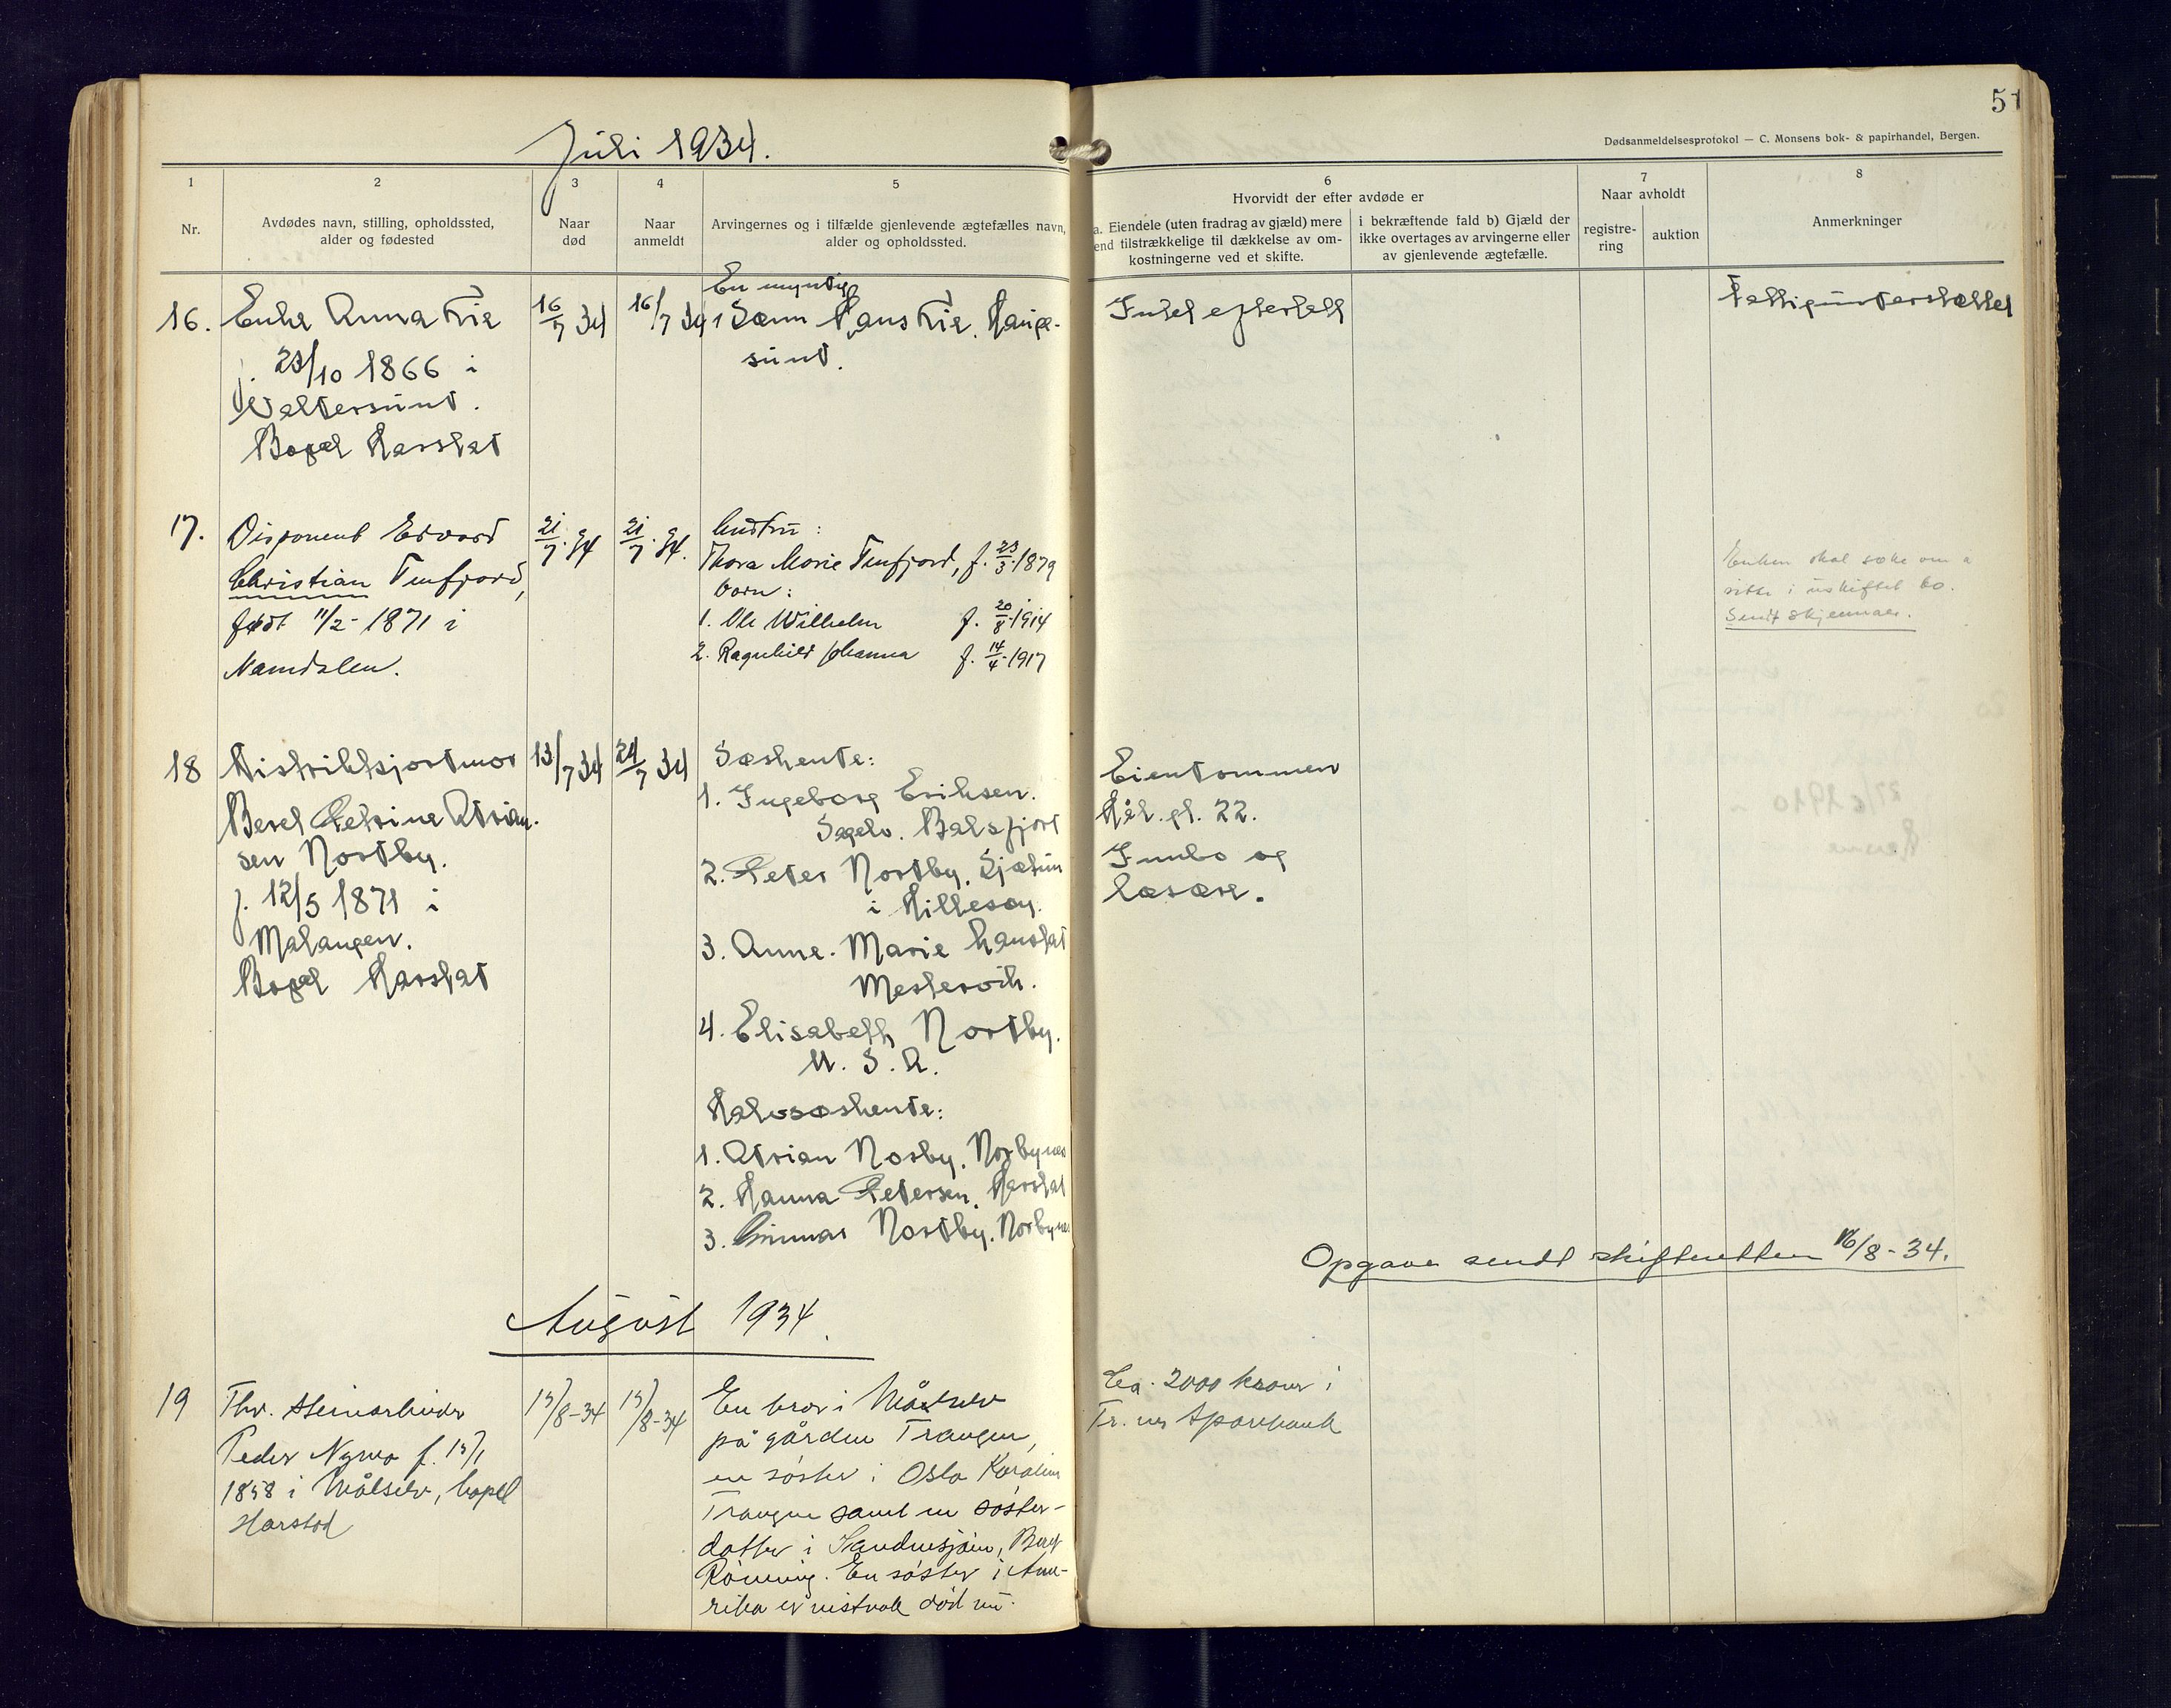 51
Dødsanmeldelsesprotokol — C. Monsens bok- & papirhandel, Bergen.
Juli 1934.
1
2
3
4
5
6
7
8
Nr.
Avdødes navn, stilling, opholdssted,
alder og fødested
Naar
død
Naar
anmeldt
Arvingernes og i tilfælde gjenlevende ægtefælles navn,
alder og opholdssted.
Hvorvidt der efter avdøde er
a. Eiendele (uten fradrag av gjæld) mere
end tilstrækkelige til dækkelse av om-
kostningerne ved et skifte.
i bekræftende fald b) Gjæld der
ikke overtages av arvingerne eller
av gjenlevende ægtefælle.
Naar avholdt
registre-
ring
auktion
Anmerkninger
16.
Enke Anna Lie
f. 23/10 1866 i
Valdersund.
Bopel Harstad
16/7 34
16/7 34
En myndig
1 Sønn Hans Lie. Hauge-
sund.
Intet efterlatt
Fattigunderstøttet
17.
Disponent Edvard
Christian Finfjord,
født 11/2-1871 i
Namdalen.
21/7.34
21/7.34.
hustru:
Thora Marie Finfjord, f. 23/3.1879
barn:
1. Ole Wilhelm f. 20/8.1914
2. Ragnhild Johanna f. 14/4.1917
Enken skal søke om å
sitte i uskiftet bo.
Sendt skjemaer.
18
Distriktsjordmor
Beret Petrine Adrian-
sen Nordby.
f. 12/5 1871 i
Malangen.
Bopel Harstad
13/7 34
24/7 34
Søskende:
1. Ingeborg Eriksen.
Sagelv. Balsfjord
2. Peter Nordby.
i Hillesøy.
3. Anne-Marie
Mestervik.
4. Elisabeth Nordby.
U.S.A.
Halvsøskende:
1. Adrian Norby. Norbynes
2. Hanna Petersen. Harstad
3. Gunnar Nordby. Norbynes
Eiendommen
Håk.gt. 22.
Innbo og
løsøre.
Opgave sendt skifteretten 16/8-34.
August 1934.
19
Fhv. Steinarbeider
Peder Nymo f.
1858 i Målselv, bopel
Harstad
13/8-34
13/8-34
En bror i Målselv
på gården Trangen,
en søster i Oslo Karoline
Trangen samt en søster-
datter i Sandnessjøen,
Rönning. En søster i Ame-
rika er vistnok død nu.
Ca. 2000 kroner i
Tr.nes Sparebank